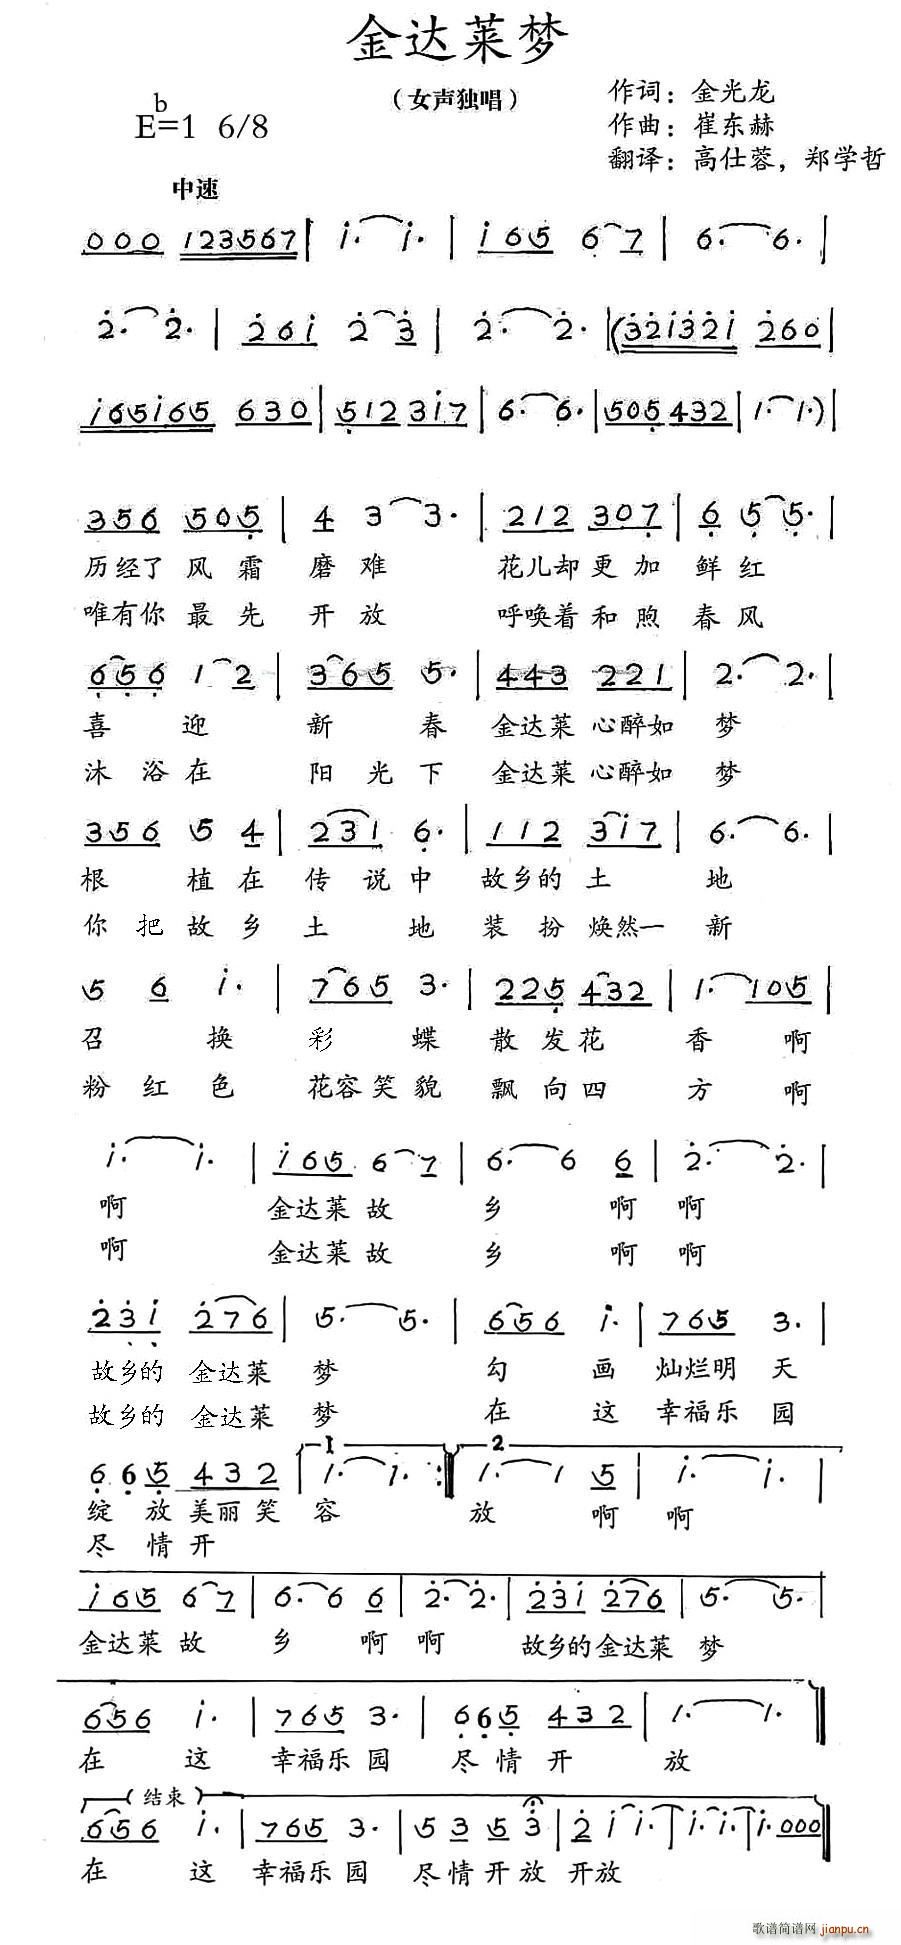 金达莱梦
（女声独唱）
作词：金光龙
作曲：崔东赫
翻译：高仕蓉，郑学哲
bE=1 6/8
中速
000 1235567 | i· i· | i65 6 7 | 6· 6· |
2· 2· | 26i 2 3 | 2· 2· | (32i32i 260 |
i65i65 630 | 512 3i7 | 6· 6· | 505 432 | 1· 1·) |
356 505 | 4 3 3· | 212 307 | 6 5 5· |
历经了 风霜 磨难 花儿却更加 鲜红
唯有你 最先 开放 呼唤着和煦 春风
656 1 2 | 365 5· | 443 221 | 2· 2· |
喜 迎 新 春 金达莱 心醉如 梦
沐浴在 阳光下 金达莱 心醉如 梦
356 5 4 | 231 6· | 112 3i7 | 6· 6· |
根 植在 传说中 故乡的 土 地
你把故乡 土 地 装扮 焕然一 新
5 6 i· | 765 3· | 225 432 | 1· 105 |
召 换 彩 蝶 散发花 香 啊
粉红色 花容笑貌 飘向四 方 啊
i· i· | i65 6 7 | 6· 6 6 | 2· 2· |
啊 金达莱 故 乡 啊 啊
啊 金达莱 故 乡 啊 啊
23i 276 | 5· 5· | 656 i· | 765 3· |
故乡的 金达莱 梦 勾 画 灿烂明 天
故乡的 金达莱 梦 在 这 幸福乐 园
1 2
6·65 432 | 1· 1· :| 1· 1 5 | i· i· |
绽 放美丽笑 容 放 啊 啊
尽 情开
i65 6 7 | 6· 6 6 | 2· 2· | 23i 276 | 5· 5· |
金达莱 故 乡 啊 啊 故乡的金达莱 梦
656 i· | 765 3· | 6·65 432 | 1· 1· ||
在 这 幸福乐 园 尽 情 开 放
结束
656 i· | 765 3· | 5 3 5 3· | 2 i i· | i· i· | i· 000 ||
在 这 幸福乐 园 尽情开放 开放
歌谱简谱网
jianpu.cn